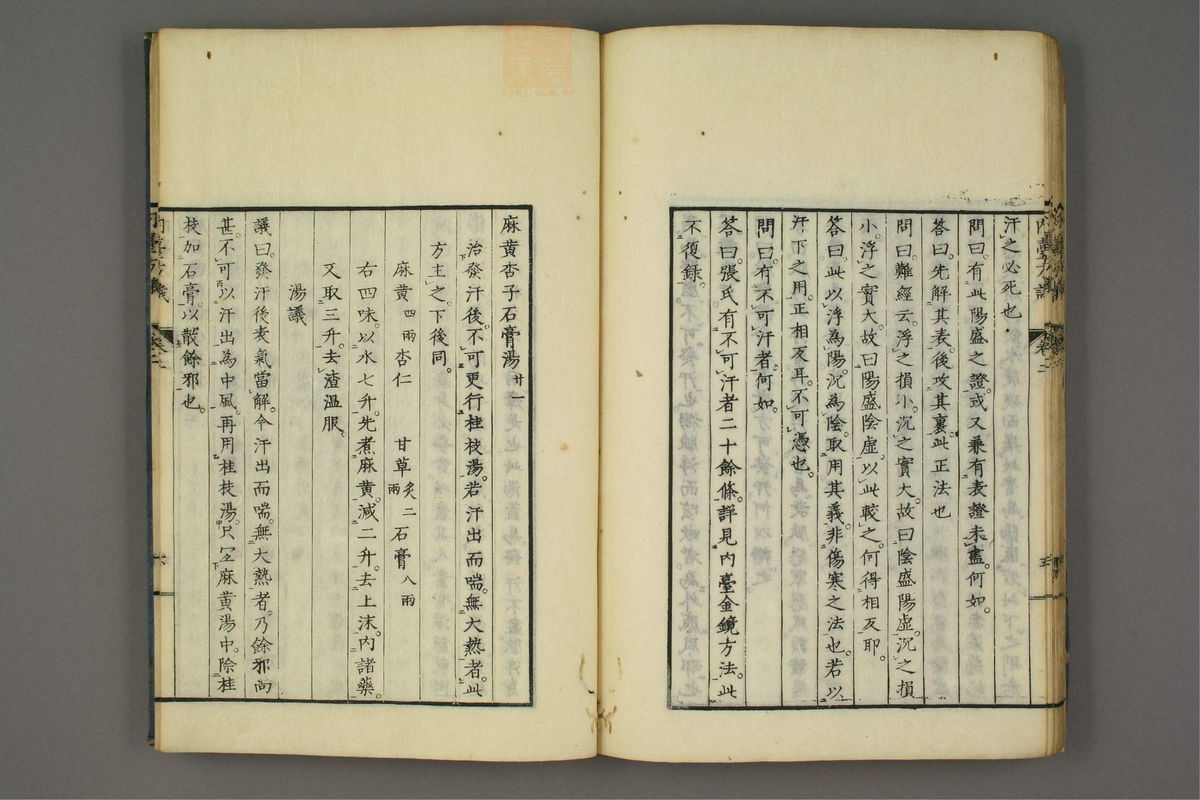 汗之必死也
問曰有此陽盛之證或又兼有表證未盡何如
答曰先解其表後攻其裏此正法也
問曰難經云浮之損小沉之實大故曰陰盛陽虛沉之損
小浮之實大故曰陽盛陰虛以此較之何得相反耶
答曰此以浮為陽沉為陰取用其義非傷寒之法也若以
汗下之用正相反耳不可憑也
問曰有不可汗者何如
答曰張氏有不可汗者二十餘條詳見內臺金鏡方法此
不復錄
麻黃杏子石膏湯 廿一
治發汗後不可更行桂枝湯若汗出而喘無大熱者此
方主之下後同
麻黃 四兩 杏仁 甘草 炙二兩 石膏 八兩
右四味以水七升先煮麻黃減二升去上沫內諸藥
又取三升去渣溫服
湯議
議曰發汗後表氣當解今汗出而喘無大熱者乃餘邪尚
甚不可以汗出為中風再用桂枝湯只宜麻黃湯中除桂
枝加石膏以散餘邪也